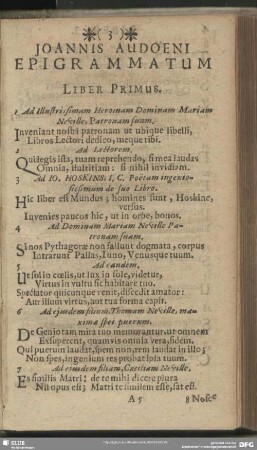 ( 3 )
JOANNIS AUDOENI
EPIGRAMMATUM
LIBER PRIMUS.
1 Ad Illustrissimam Heroinam Dominam Mariam
Neville, Patronam suam.
Inveniant nostri patronam ut ubique libelli,
Libros Lectori dedico, meque tibi.
2 Ad Lectorem.
Qui legis ista, tuam reprehendo, si mea laudas
Omnia, stultitiam: si nihil invidiam.
3 Ad IO. HOSKINS: I. C. Poëtam ingenio-
sissimum de suo Libro.
Hic liber est Mundus; homines sunt, Hoskine,
versus.
Invenies paucos hic, ut in orbe, bonos.
4 Ad Dominam Mariam Neville Pa-
tronam suam.
Si nos Pythagoræ non fallunt dogmata, corpus
Intrarunt Pallas, Juno, Venusque tuum.
5 Ad eandem.
Ut sol in cœlis, ut lux in sole, videtur,
Virtus in vultu sic habitare tuo.
Spectator quicunque venit, discedit amator:
Attrahit virtus, aut tua forma capit.
6 Ad ejusdem filium, Thomam Neville, ma-
xima spei puerum.
De Genio tam mira tuo memorantur, ut omnem
Exsuperent, quamvis omnia vera, fidem.
Qui puerum laudat, spem, non rem laudat in illo;
Non spes, ingenium res probat ipsa tuum.
7 Ad ejusdem filiam, Cæciliam Neville.
Es similis Matri; de te mihi dicere plura
Nil opus est; Matri te similem esse, sat est.
A 5
8 Nosce